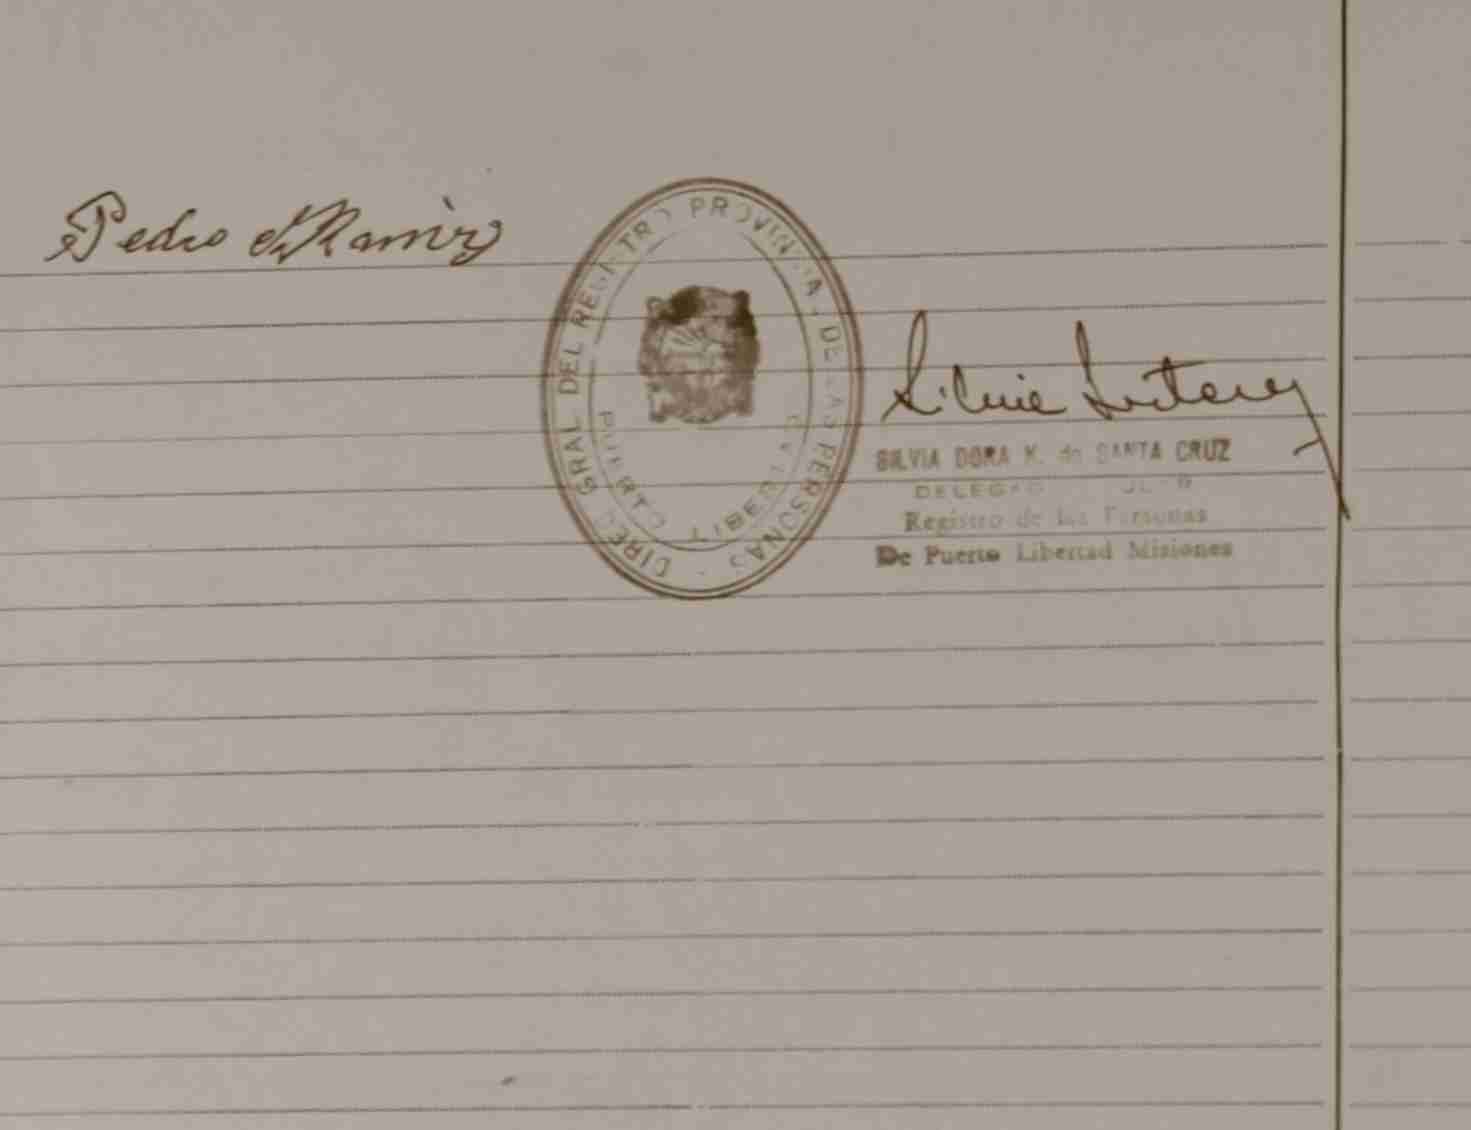 Pedro Ramirz
DIREC. GRAL DEL REGISTRO PROVINCIAL DE LAS PERSONAS -
PUERTO LIBERTAD
Silvia
SILVIA DORA K. de SANTA CRUZ
Registro de las Personas
De Puerto Libertad Misiones